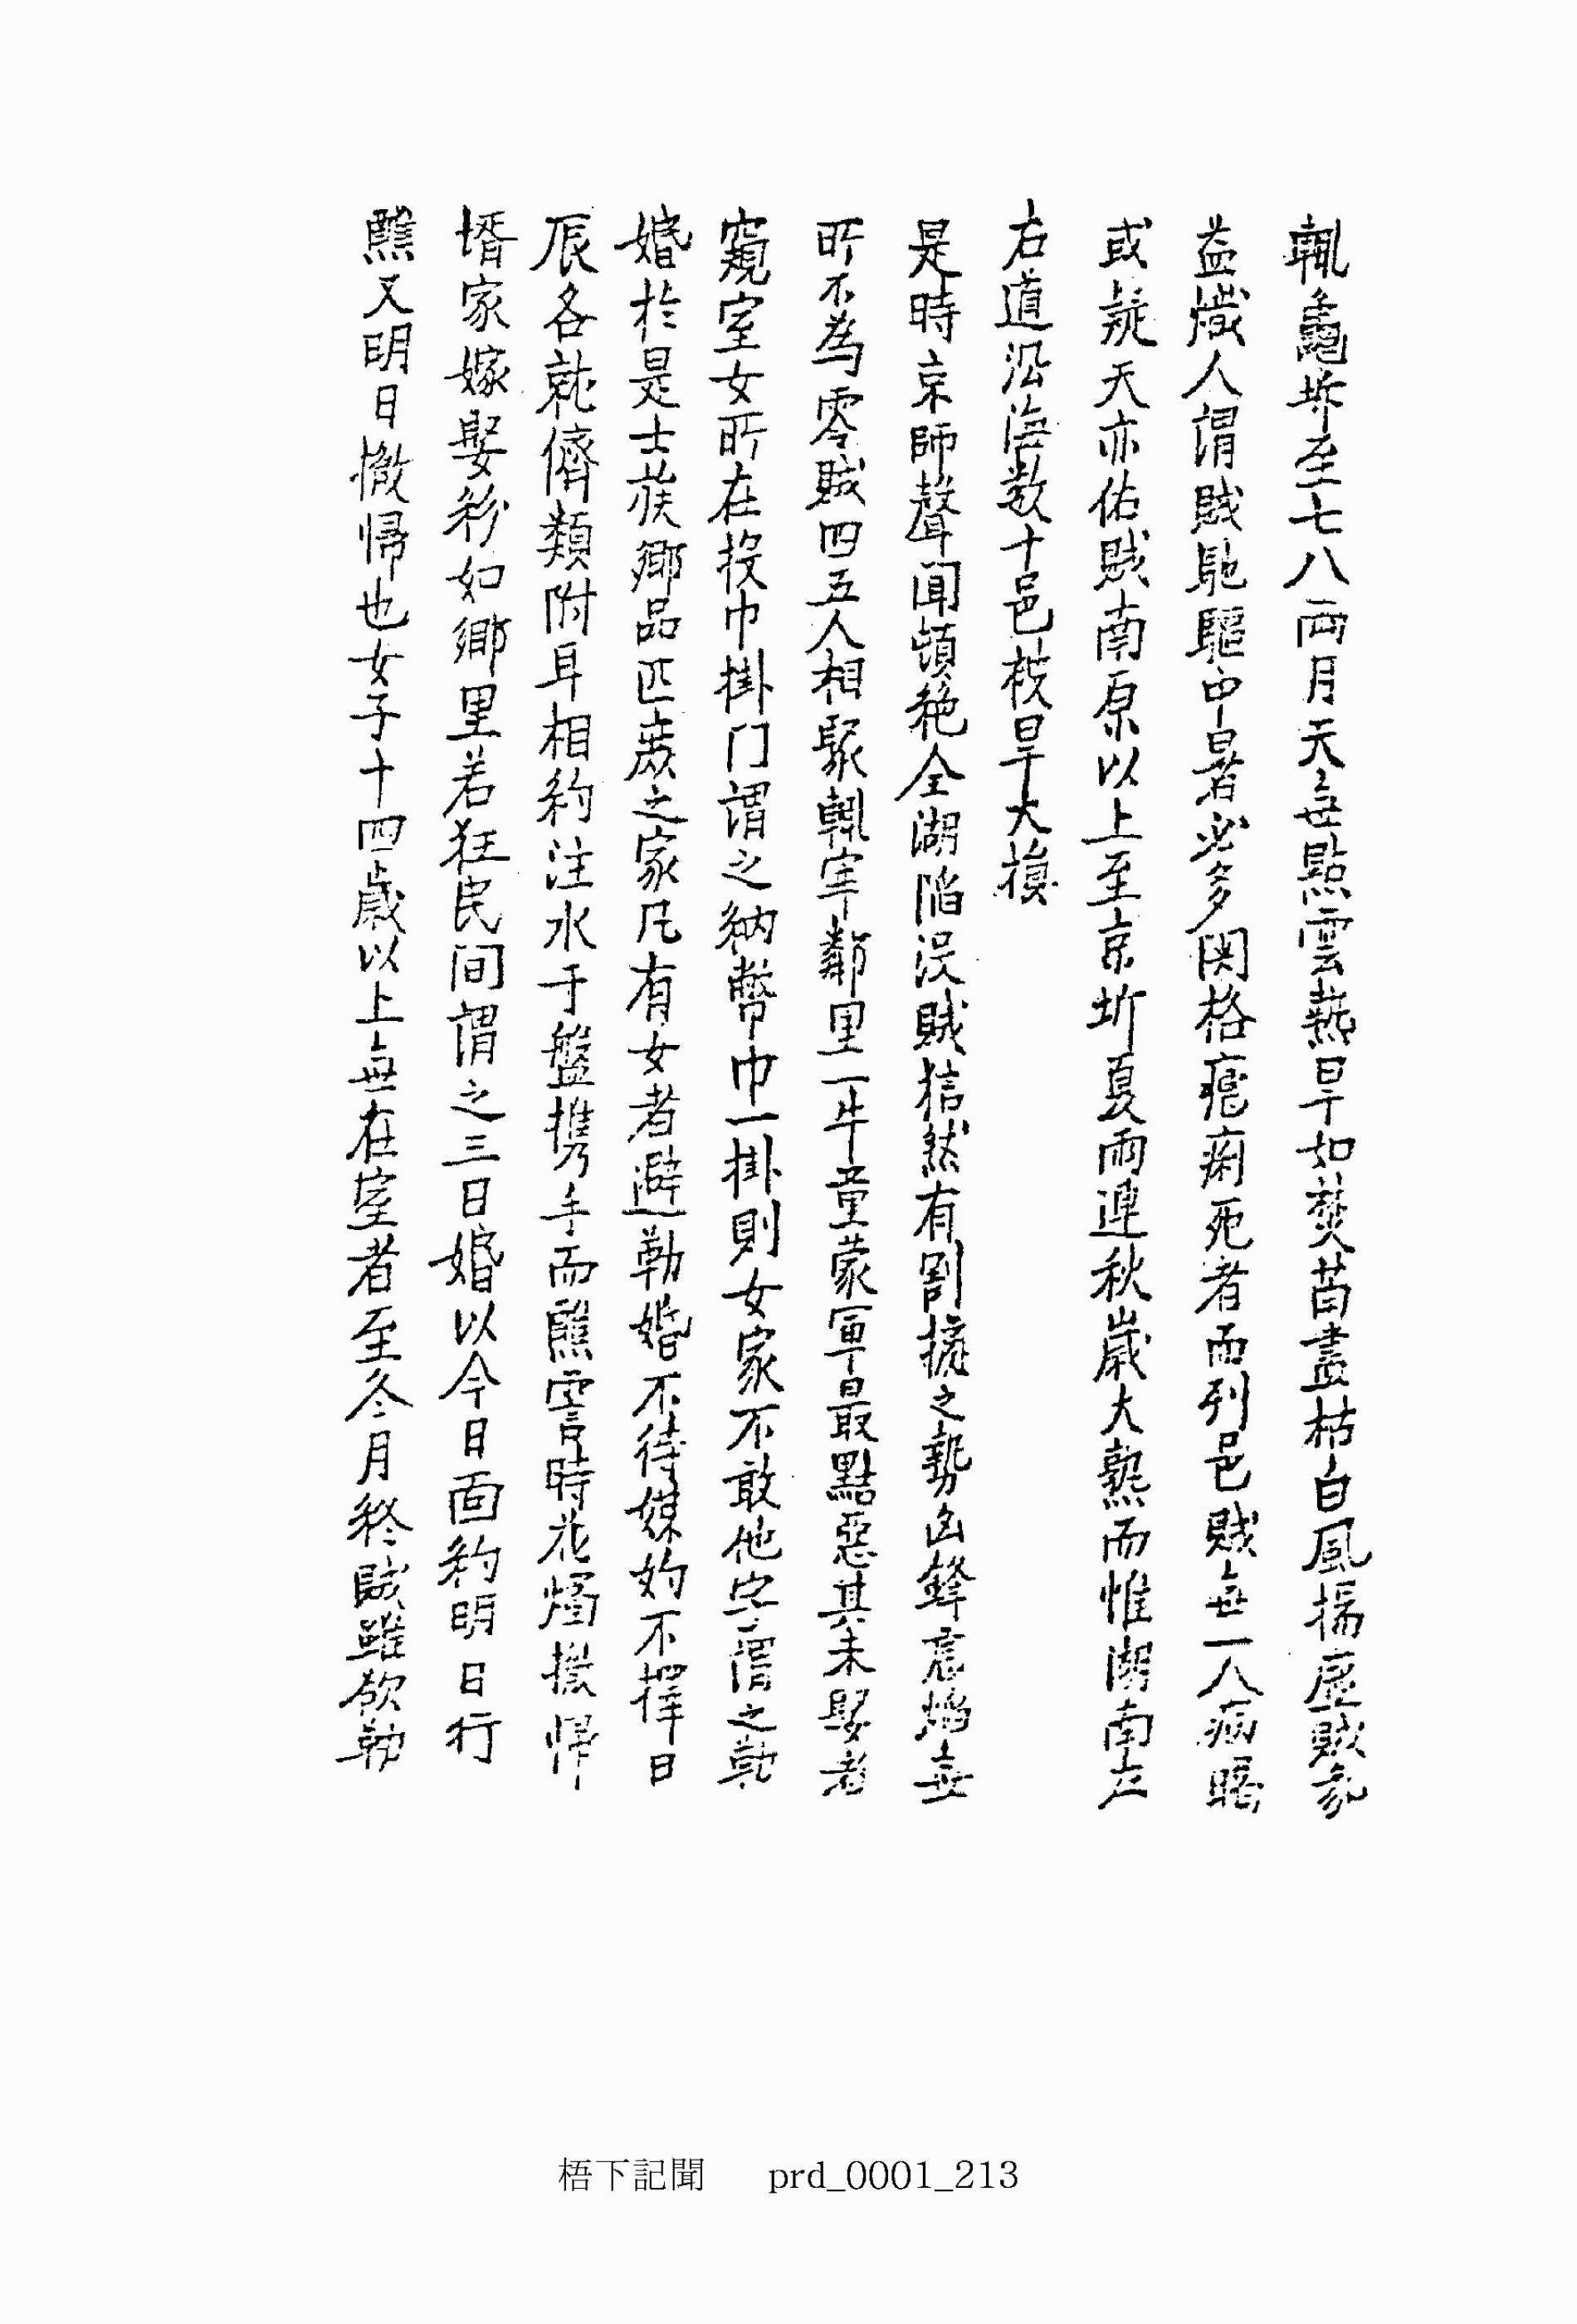 輒龜坼至七八兩月天無點雲熱旱如焚苗盡枯白風揚塵賊氣
益熾人謂賊馳驅中暑必多関格瘧痢死者而列邑賊無一人病暍
或疑天亦佑賊南原以上至京圻夏雨連秋歲大熟而惟湖南左
右道沿海数十邑被旱大損
是時京師聲聞頓絶全湖陷沒賊猖然有割據之勢凶鋒㐫焰無
所不為零賊四五人相聚輒牢鄰里一牛童蒙軍最黠惡其未娶者
窺室女所在投巾掛门謂之納幣巾一掛則女家不敢他字謂之勒
婚於是士族鄉品匹庶之家凡有女者避勒婚不待媒妁不擇日
辰各就儕類附耳相約注水于盤携手而醮雪時花燭撤帰
壻家嫁娶紛如鄉里若狂民间謂之三日婚以今日面約明日行
醮又明日撤帰也女子十四歲以上無在室者至冬月終賊雖欲勒
梧下記聞 prd_0001_213